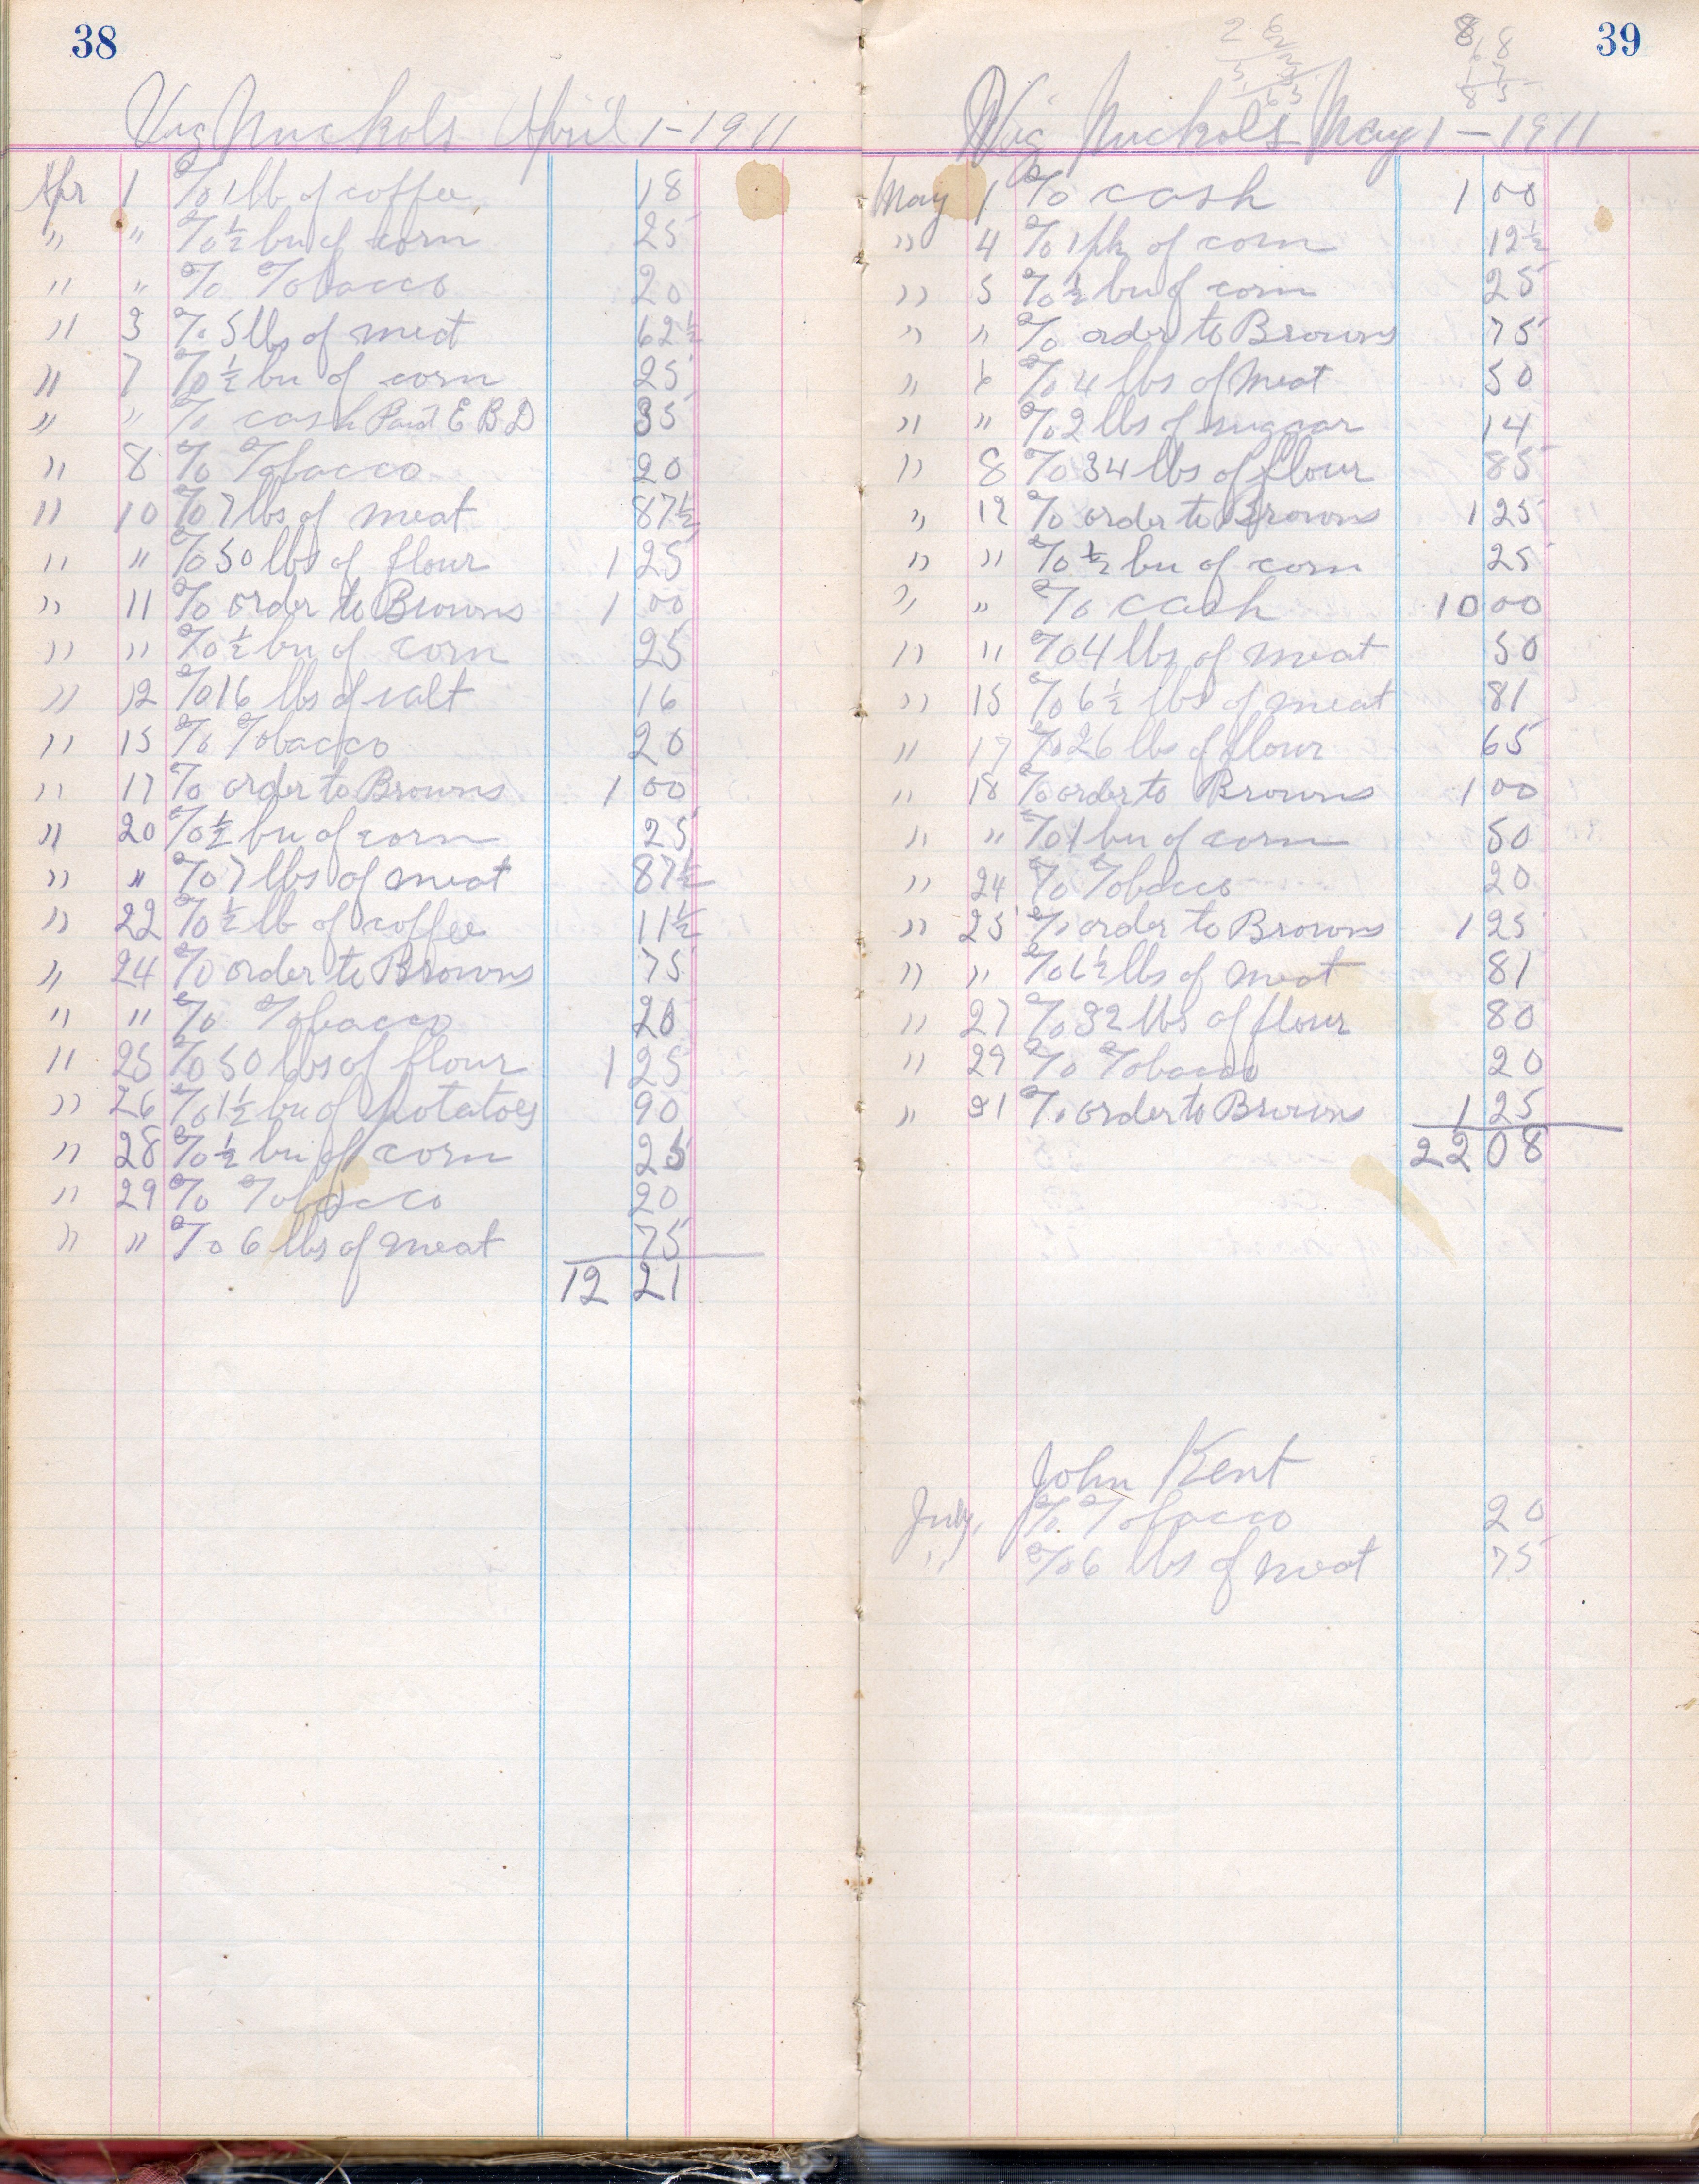 38
Vig Nuckols April 1-1911
Apr 1 To 1 lb of coffee 18
" " To ½ bu of corn 25
" " To Tobacco 20
" 3 To 5 lbs of meat 62½
" 7 To ½ bu of corn 25
" " To cash Paid E B D 35
" 8 To Tobacco 20
" 10 To 7 lbs of meat 87½
" " To 50 lbs of flour 1 25
" 11 To order to Browns 1 00
" " To ½ bu of corn 25
" 12 To 16 lbs of salt 16
" 15 To Tobacco 20
" 17 To order to Browns 1 00
" 20 To ½ bu of corn 25
" " To 7 lbs of meat 87½
" 22 To ½ lb of coffee 11½
" 24 To order to Browns 75
" " To Tobacco 20
" 25 To 50 lbs of flour 1 25
" 26 To 1½ bu of potatoes 90
" 28 To ½ bu of corn 25
" 29 To Tobacco 20
" " To 6 lbs of meat 75
12 21
39
Vig Nuckols May 1-1911
May 1 To cash 1 00
" 4 To 1 pk of corn 12½
" 5 To ½ bu of corn 25
" " To order to Browns 75
" 6 To 4 lbs of meat 50
" " To 2 lbs of suggar 14
" 8 To 34 lbs of flour 85
" 12 To order to Browns 1 25
" " To ½ bu of corn 25
" " To cash 10 00
" " To 4 lbs of meat 50
" 15 To 6½ lbs of meat 81
" 17 To 26 lbs of flour 65
" 18 To order to Browns 1 00
" " To 1 bu of corn 50
" 24 To Tobacco 20
" 25 To order to Browns 1 25
" " To 6½ lbs of meat 81
" 27 To 32 lbs of flour 80
" 29 To Tobacco 20
" 31 To order to Browns 1 25
22 08
John Kent
July, To Tobacco 20
" To 6 lbs of meat 75